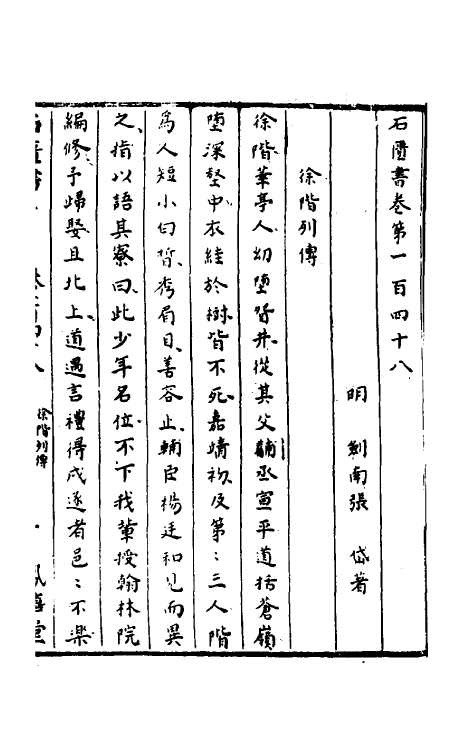 石匱書卷第一百四十八
明 劍南張 岱著
徐階列傳
徐階華亭人幼墮眢井從其父輔丞宣平道括蒼嶺
墮深壑中衣絓於樹皆不死嘉靖初及第三人階
為人短小白皙秀眉目善容止輔臣楊廷和見而異
之指以語其寮曰此少年名位不下我輩授翰林院
編修予歸娶且北上道遇言禮得戍逐者邑〻不樂
徐階列傳